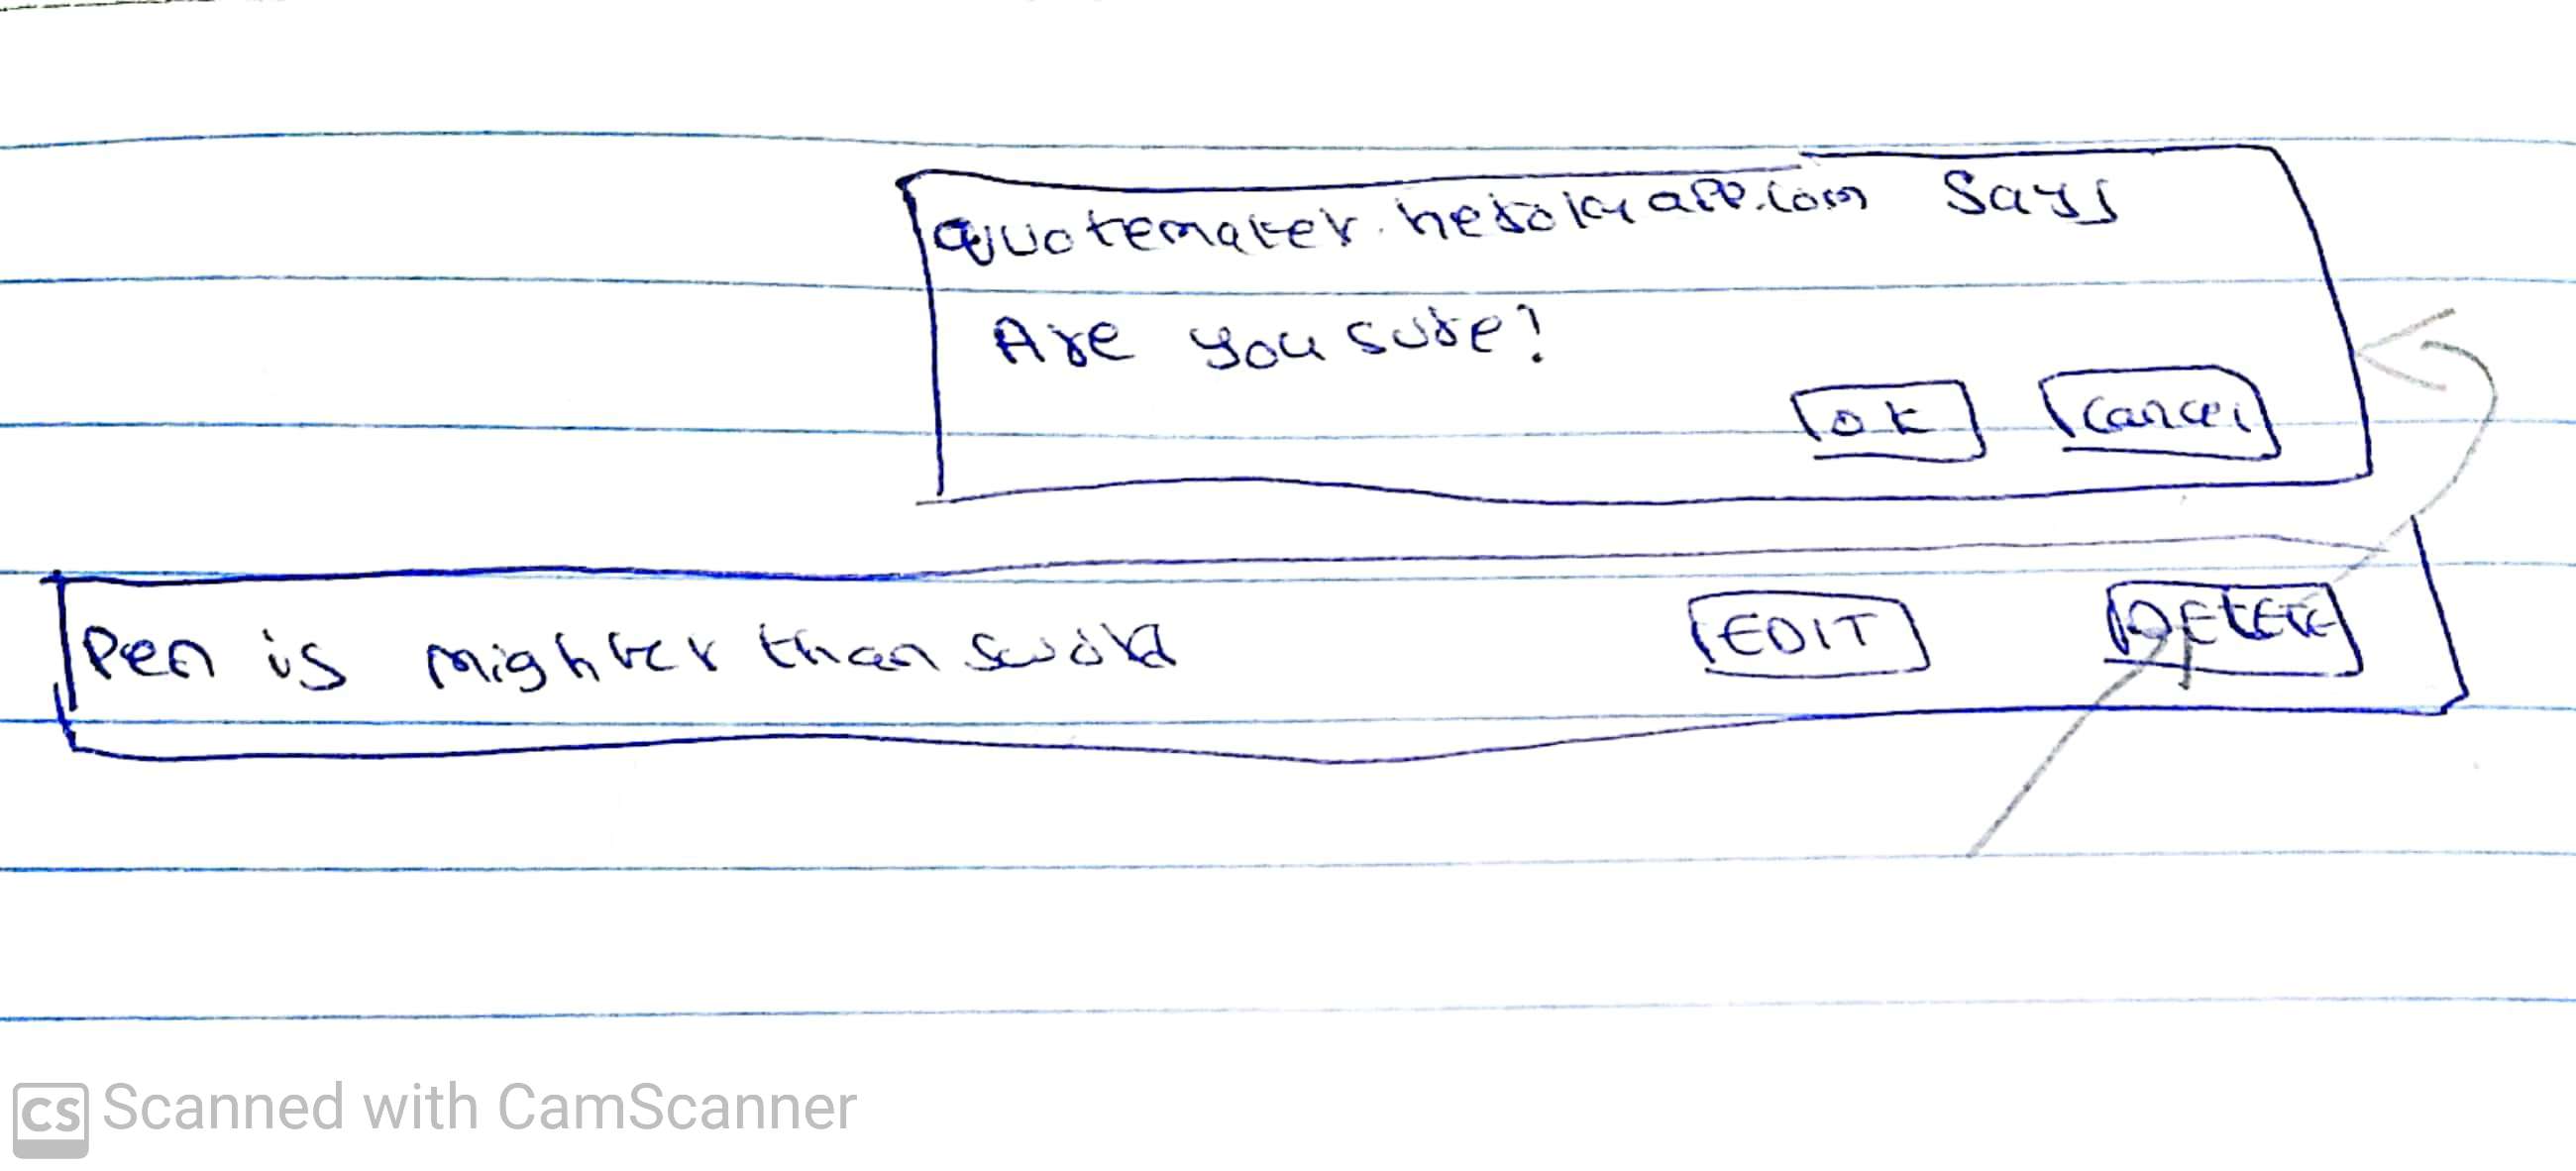 quotemaker.herokuapp.com says
Are you sure?
OK Cancel
Pen is mighter than sword EDIT DELETE
CS Scanned with CamScanner